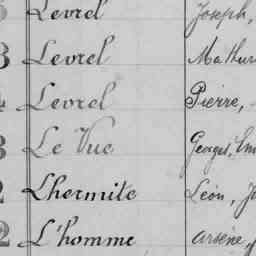 Levrel Joseph,
3 Levrel Mathur
4 Levrel Pierre,
3 Le Vue Georges, Em
2 Lhermite Léon, J
2 L'homme Arsène, J